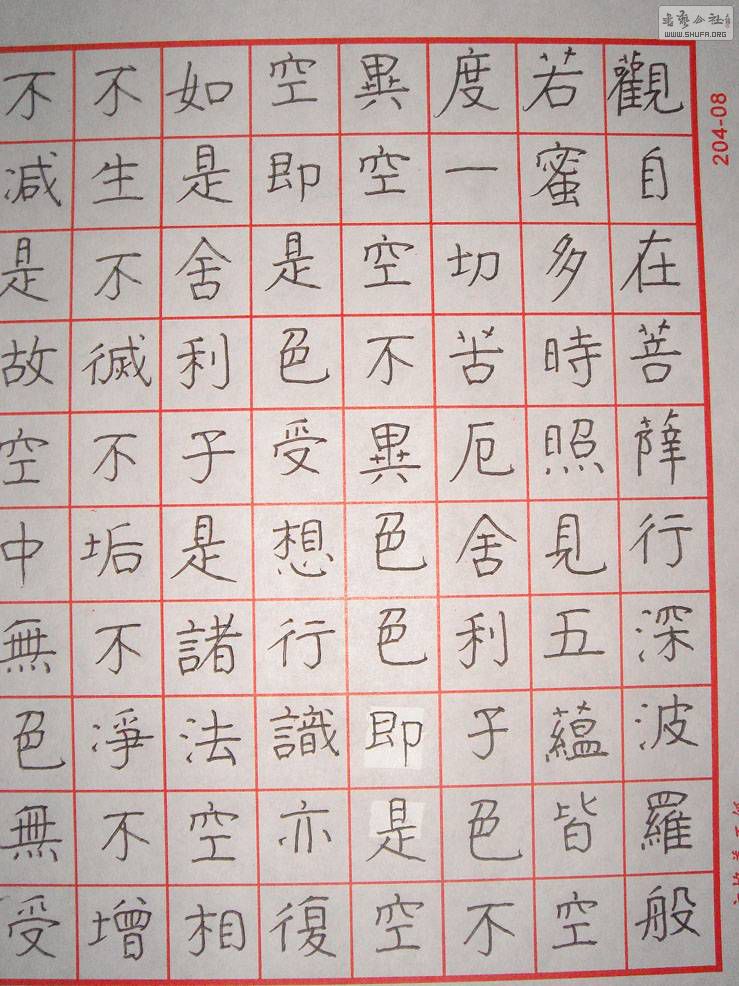 觀自在菩薩行深波羅般
若蜜多時照見五蘊皆空
度一切苦厄舍利子色不
異空空不異色色即是空
空即是色受想行識亦復
如是舍利子是諸法空相
不生不滅不垢不淨不增
不減是故空中無色無受
204-08
書藝公社
WWW.SHUFA.ORG